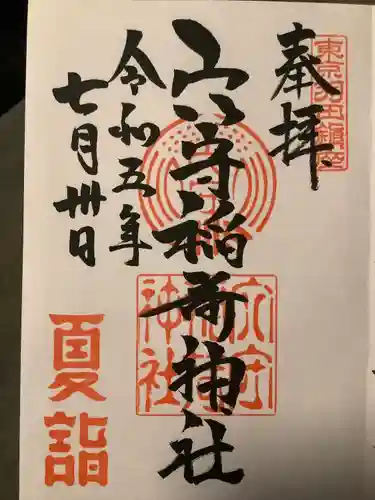 東京羽田鎮座
奉拝
穴守稲荷神社
穴守稲荷神社
令和五年
七月卅日
夏詣